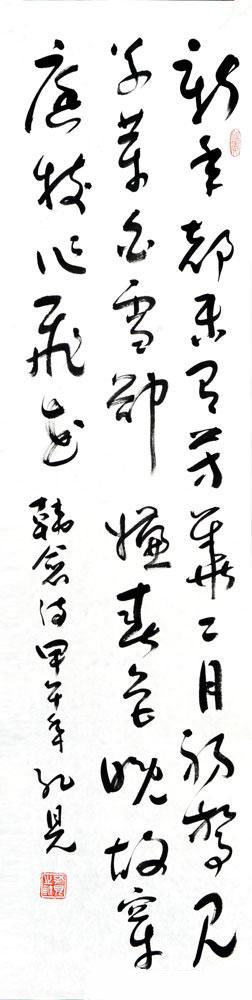 新年都未有芳華二月初驚見
草芽白雪卻嫌春色晚故穿
庭樹作飛花 韓愈詩甲午年孔見